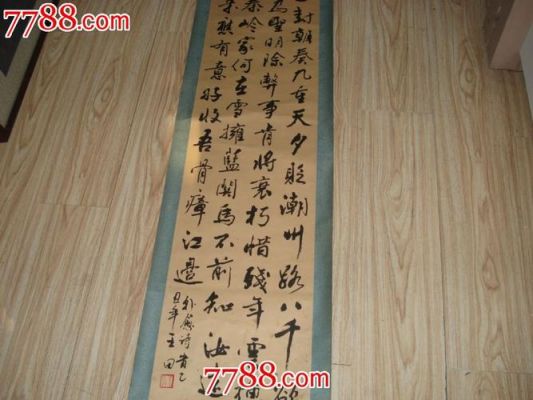 7788.com
封朝奏九重天夕貶潮州路八千欲
為聖明除弊事肯將衰朽惜殘年雲橫
秦嶺家何在雪擁藍關馬不前知汝遠
來應有意好收吾骨瘴江邊
詩 乙
丑年王田
7788.com